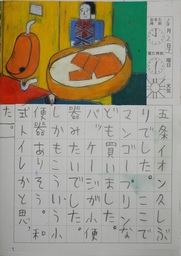 9月2日
五条イオン久しぶ
りでした。ここで
マンゴープリンな
ども買いました。
パッケージが小便
器みたいでした。
しかもこういう小
便器ありそう。和
式トイレかと思っ
た。